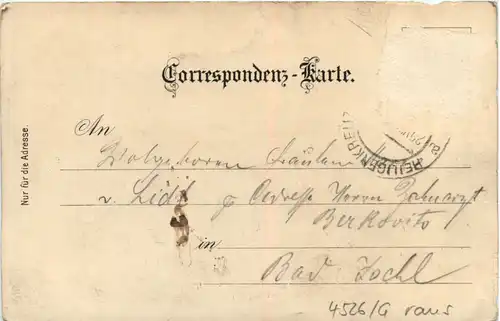 Correspondenz-Karte.
Nur für die Adresse.
HEILIGENKREUZ
An
Wolgeboren Fräulein
v. Lidl p Adresse Herrn Zahnarzt
Berkovits
in
Bad Ischl
4526/G raus